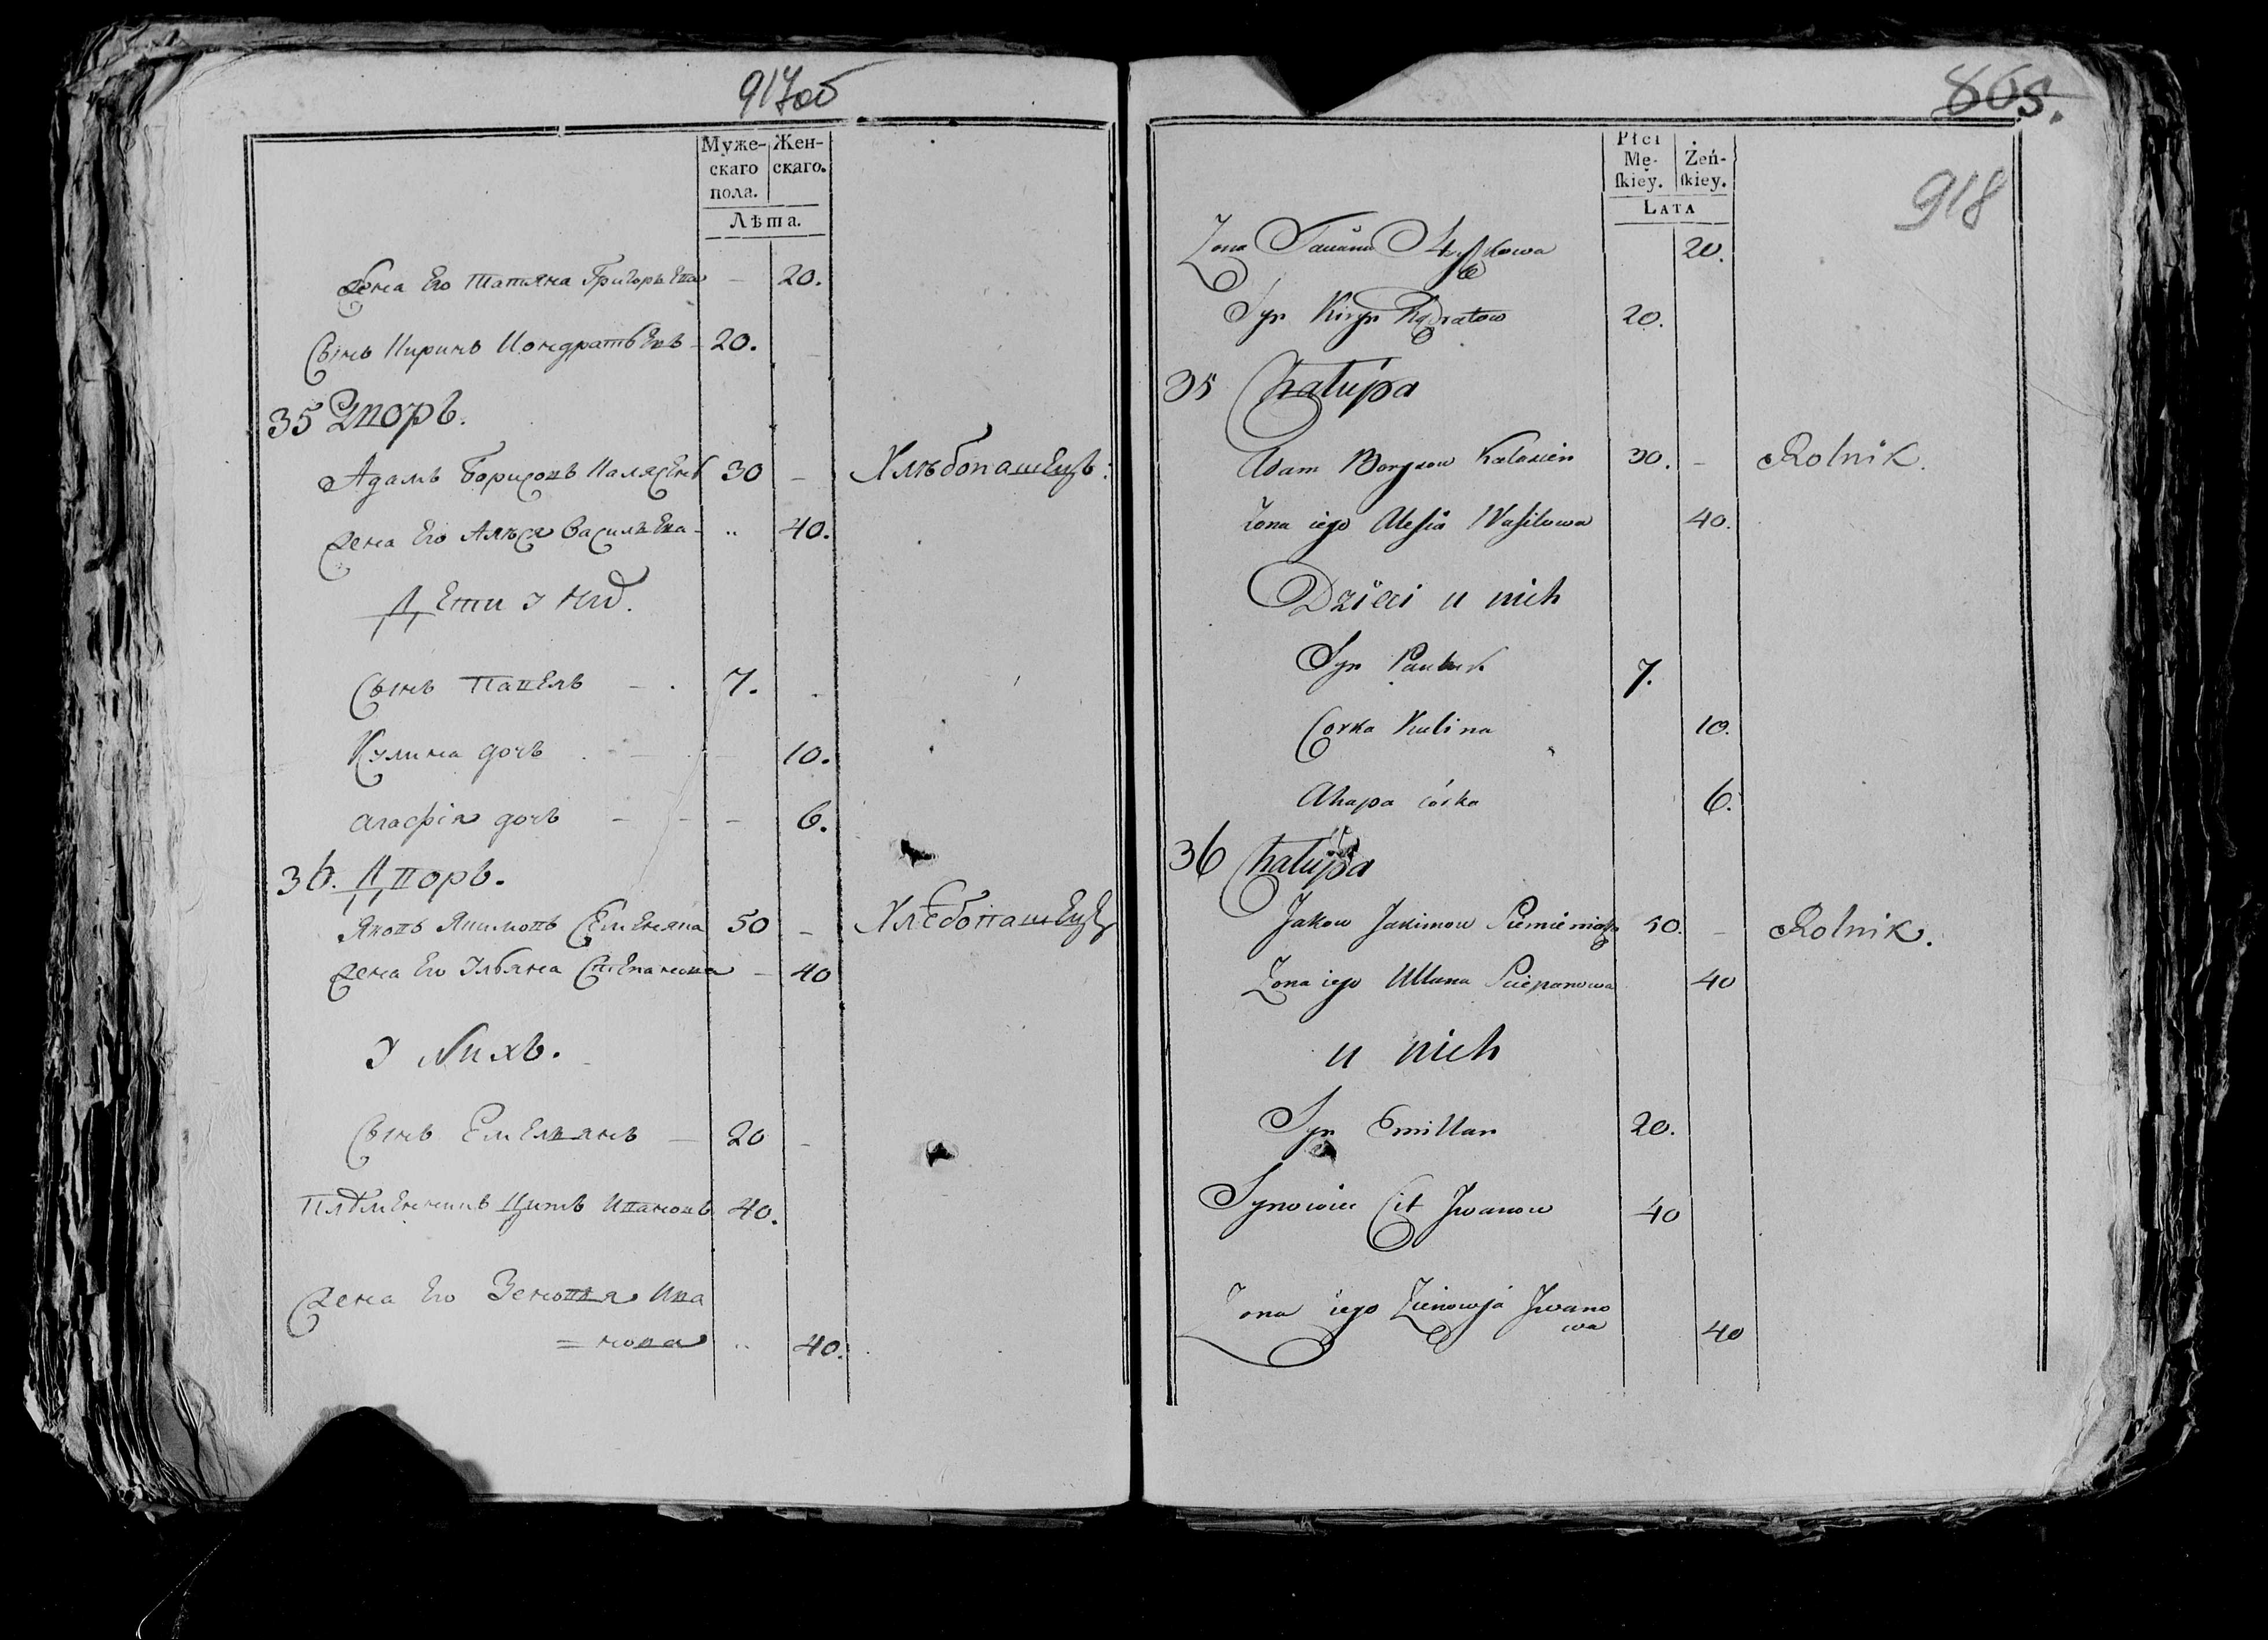 917об
Муже-
скаго
пола.
Жен-
скаго.
Лѣта.
Жена Его Татяна Григорьева - 20.
Сынъ Киринъ Кондратьевъ - 20.
35 Дворъ.
Адамъ Борисовъ 30 - Хлѣбопашецъ:
Жена Его Алѣся Василѣва - „ 40.
Дети У них.
Сынъ Павелъ - . 7.
Кулина дочь 10.
Агафія дочь - - - 6.
36. Дворъ.
Яковъ Якимовъ 50 - Хлебопашецъ
Жена Его Ульяна Степанова - 40
У Нихъ.
Сынъ Емельянъ - 20 -
Племенникъ Цитъ Ивановъ 40.
Жена Его Зеновя Ива
= нова „ 40.
865.
918
Płci
Mę-
ſkiey.
Żeń-
ſkiey.
LATA
Zona 20.
Syn Kiryn Kądratow 20.
35 Chałupa
Adam Borysow 30. - Rolnik.
Zona iego Alesia Wasilowa 40.
Dzieci u nich
Syn 7.
Corka Kulina 10.
Ahapa córka 6.
36 Chałupa
Jakow Jakimow 50. - Rolnik.
Zona iego Ullana Sciepanowa 40
u nich
Syn Emillan 20.
Synowiec Cit Jwanow 40
Zona iego Zienowja Jwano
wa 40